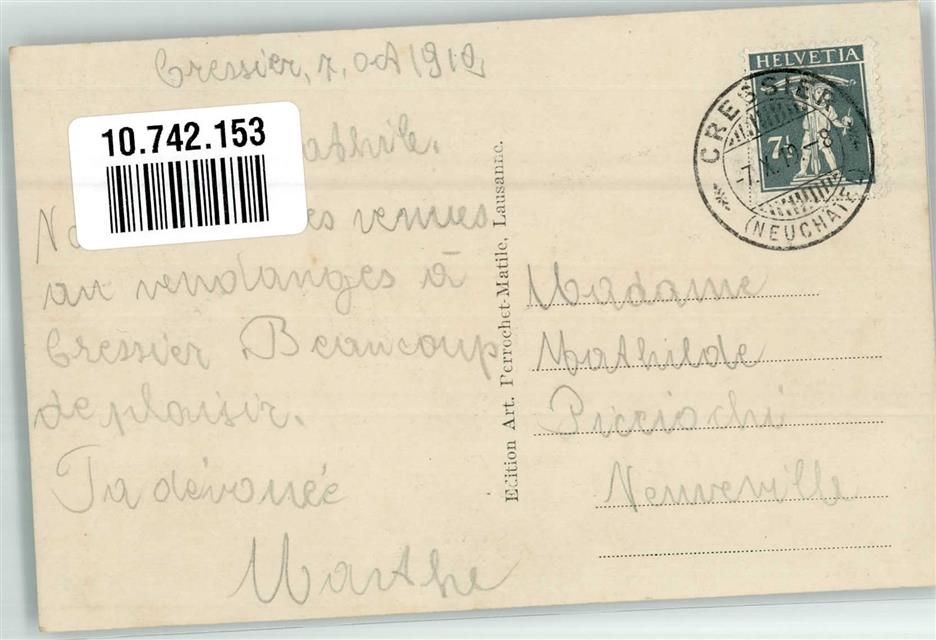 Cressier, 7, oct 1919
10.742.153
athile.
es venues
au vendanges à
Cressier. Beaucoup
de plaisir.
Ta dévouée
Marthe
Edition Art. Perrochet-Matile, Lausanne.
HELVETIA
7½
CRESSIER
-7.X.19.-8
(NEUCHATEL)
Madame
Mathilde
Picciochi
Neuveville